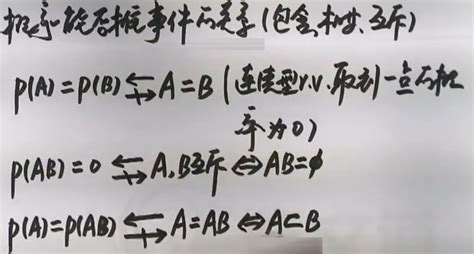 概率能否推事件的关系(包含、相等、互斥)
P(A)=P(B) ⇆̸ A=B (连续型r.v.取到一点的概
率为0)
P(AB)=0 ⇆̸ A,B互斥 ⇔ AB=∅
P(A)=P(AB) ⇆̸ A=AB ⇔ A⊂B